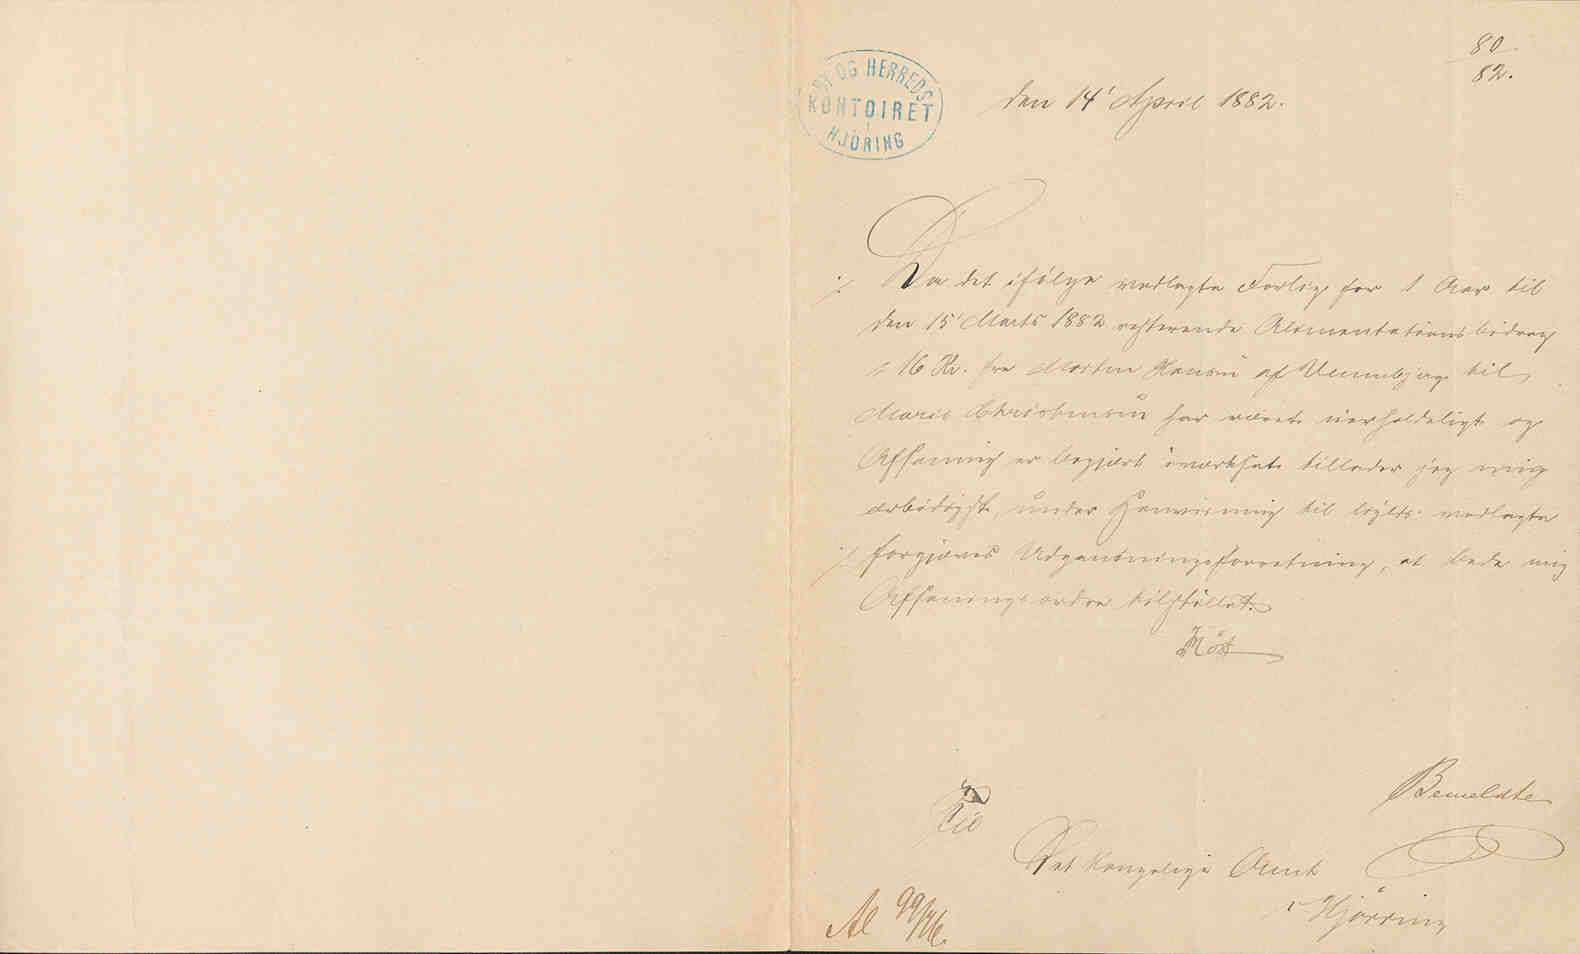 80
82.
BY OG HERREDS
KONTOIRET
I
HJÖRING
den 14' April 1882.
Da det ifølge vedlagte Forlig for 1 Aar til
den 15' Marts 1882 resterende Alimentationsbidrag
16 Kr. fra Morten Hansen af Vennebjerg til
Marie Christensen har været uerholdeligt og
Afsoning er begjært iværksat tillader jeg mig
ærbødigst, under Henviisning til vedlagte
forgjæves Udpantningsforretning, at bede mig
Afsoningsordre tilstillet.
Bemeldte
Til
Det Kongelige Amt
Hjørring
Al 99/76.